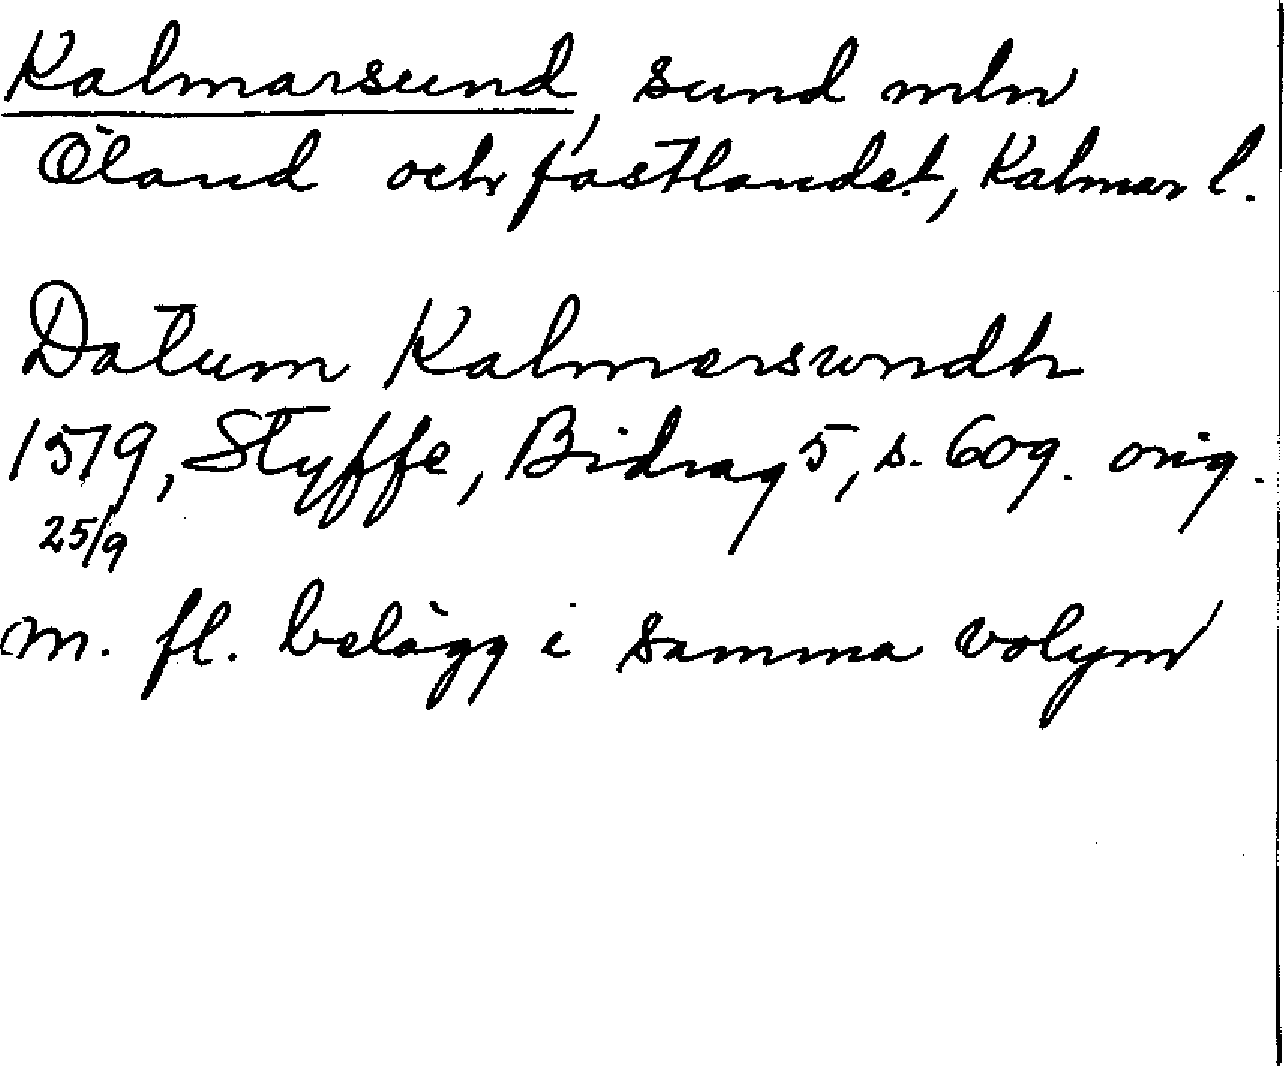 Kalmarsund, sund mln
Öland och fastlandet, Kalmar l.
Datum Kalmersundh
1519, Styffe, Bidrag 5, s. 609. orig.
25/9
m. fl. belägg i samma volym